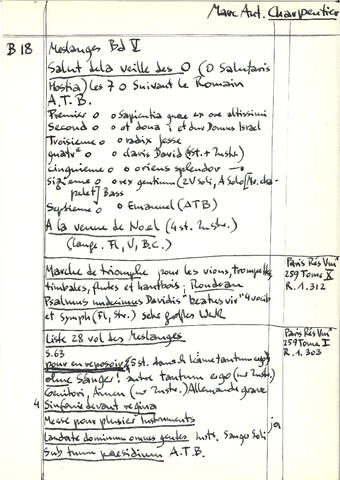 Marc Ant. Charpentier
B 18 Meslanges Bd V
Salut de la veille des O (O Salutaris
Hostia) les 7 O suivant le Romain
A.T.B.
Premier o o Sapientia quae ex ore altissimi
Second o o et dux Domus Israel
Troisieme o o radix Jesse
o clavis David (4st. + Instr.)
cinquieme o o oriens splendor
o rex gentium (2 Violi, A Solo
Bass
Septieme o o Emanuel (ATB)
A la venue de Noel (4 st. Instr.)
(Lange. Fl, V, B.C.)
Marche de triomphe pour les violons, trompettes,
timbales, flutes et hautbois; Rondeau
Psalmus undecimus Davidis "beatus vir" 4 vocib
et Symph (Fl, Str.) sehr großes Werk
Paris Rés Vm1
259 Tome X
R. 1.312
Liste 28 vol des Meslanges
S. 63
pour en reposoir
ohne Sänger! autre tantum ergo (w Instr.)
Genitori, Amen (w Instr.) Allemande grave
4 Simfonie devant regina
Messe pour plusier Instruments
Laudate dominum omnes gentes Instr. Sänger Soli
Sub tuum praesidium A.T.B.
ja
Paris Rés Vm1
259 Tome I
R. 1.303